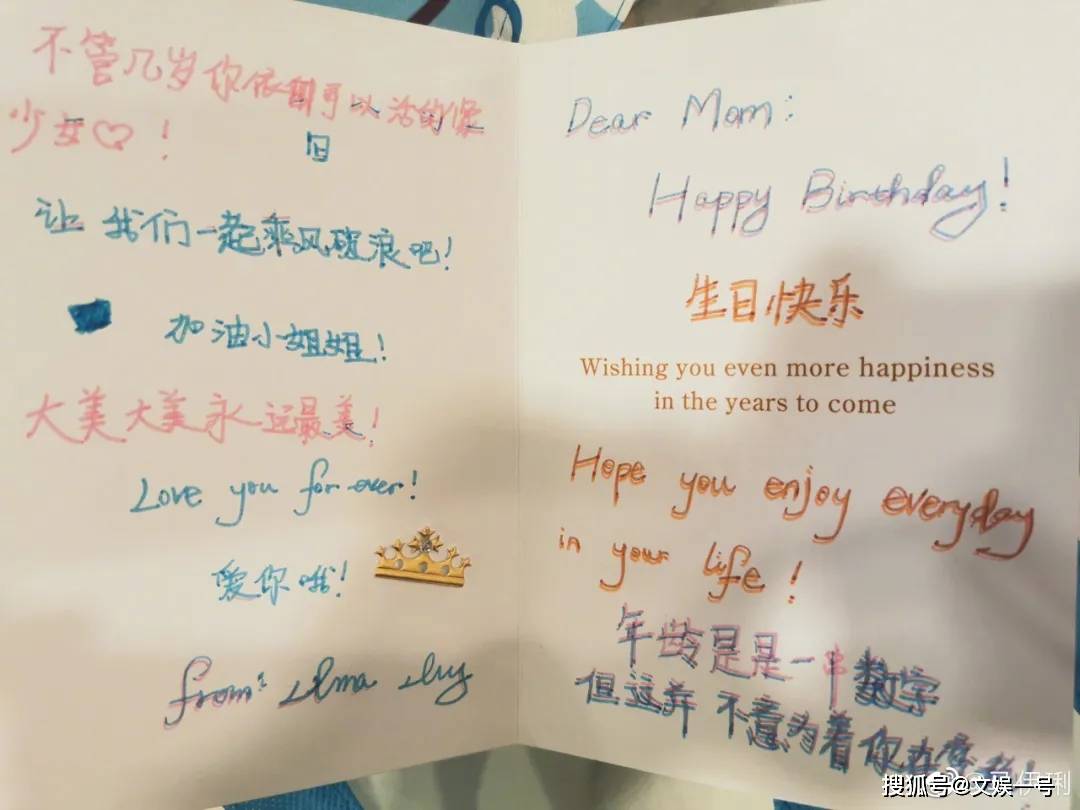 不管几岁你依可以活的像
少女♡！
旧
让我们一起乘风破浪吧！
加油小姐姐！
大美大美永远最美！
Love you for ever!
爱你哦！
from:
Dear Mom:
Happy Birthday!
生日快乐
Wishing you even more happiness
in the years to come
Hope you enjoy everyday
in your life!
年龄是是一串数字
但这并不意为着你
搜狐号@文娱一号